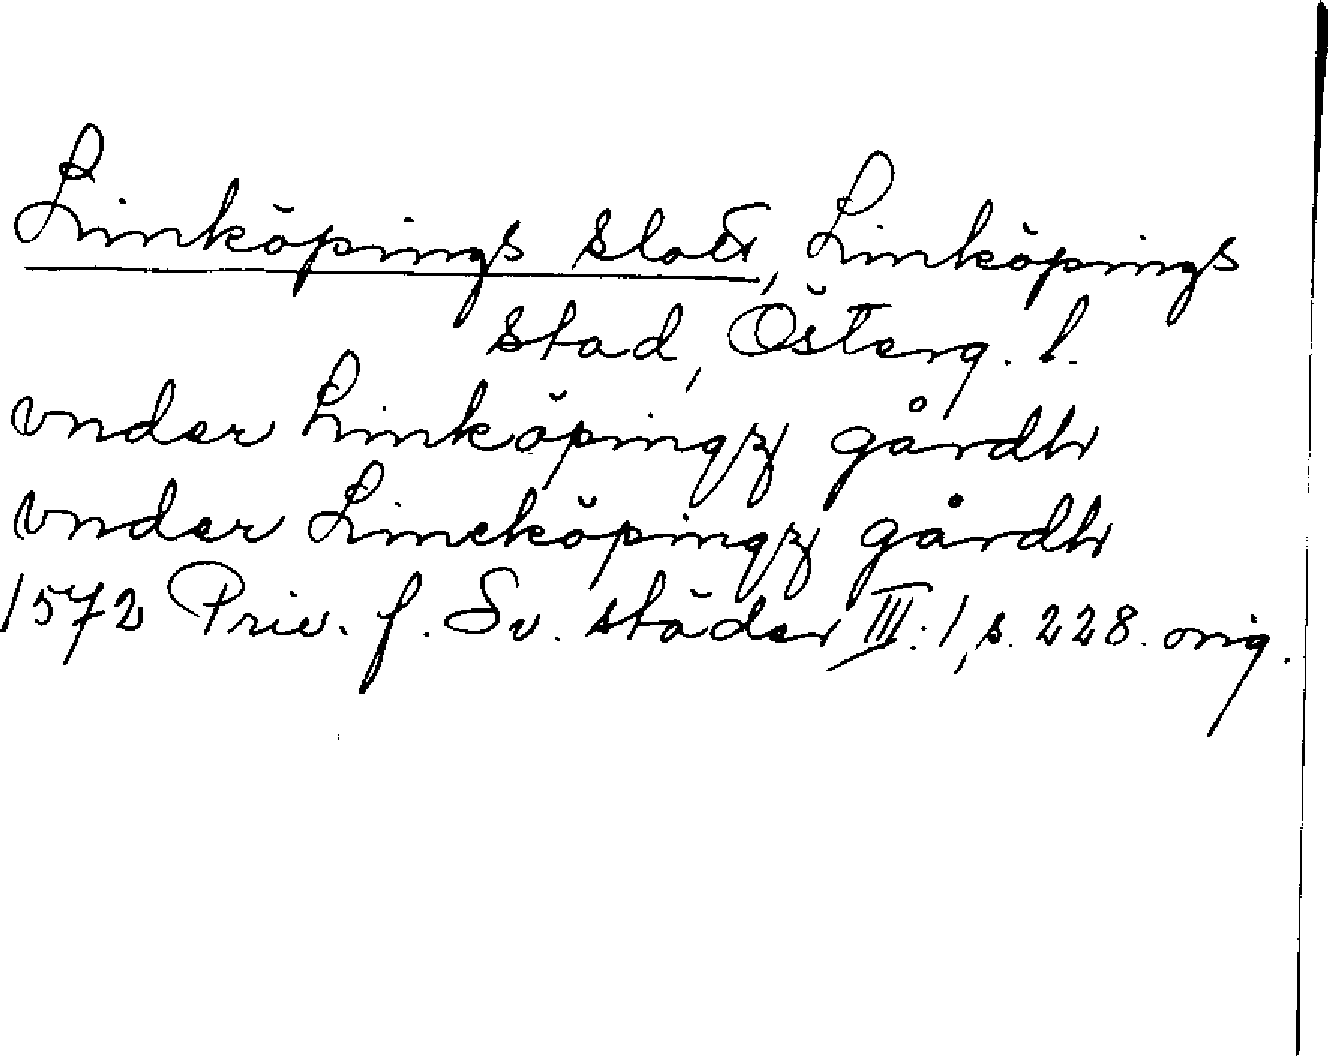 Linköpings slott, Linköpings
stad, Österg. l.
vnder Linköpingz gårdh
vnder Lineköpingz gårdh
1572 Priv. f. Sv. städer III:1, s. 228. orig.